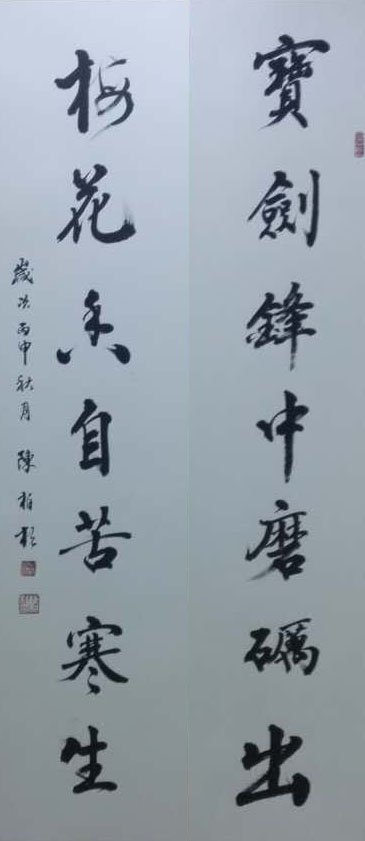 寶劍鋒中磨礪出
梅花香自苦寒生
歲次丙申秋月 陳柏